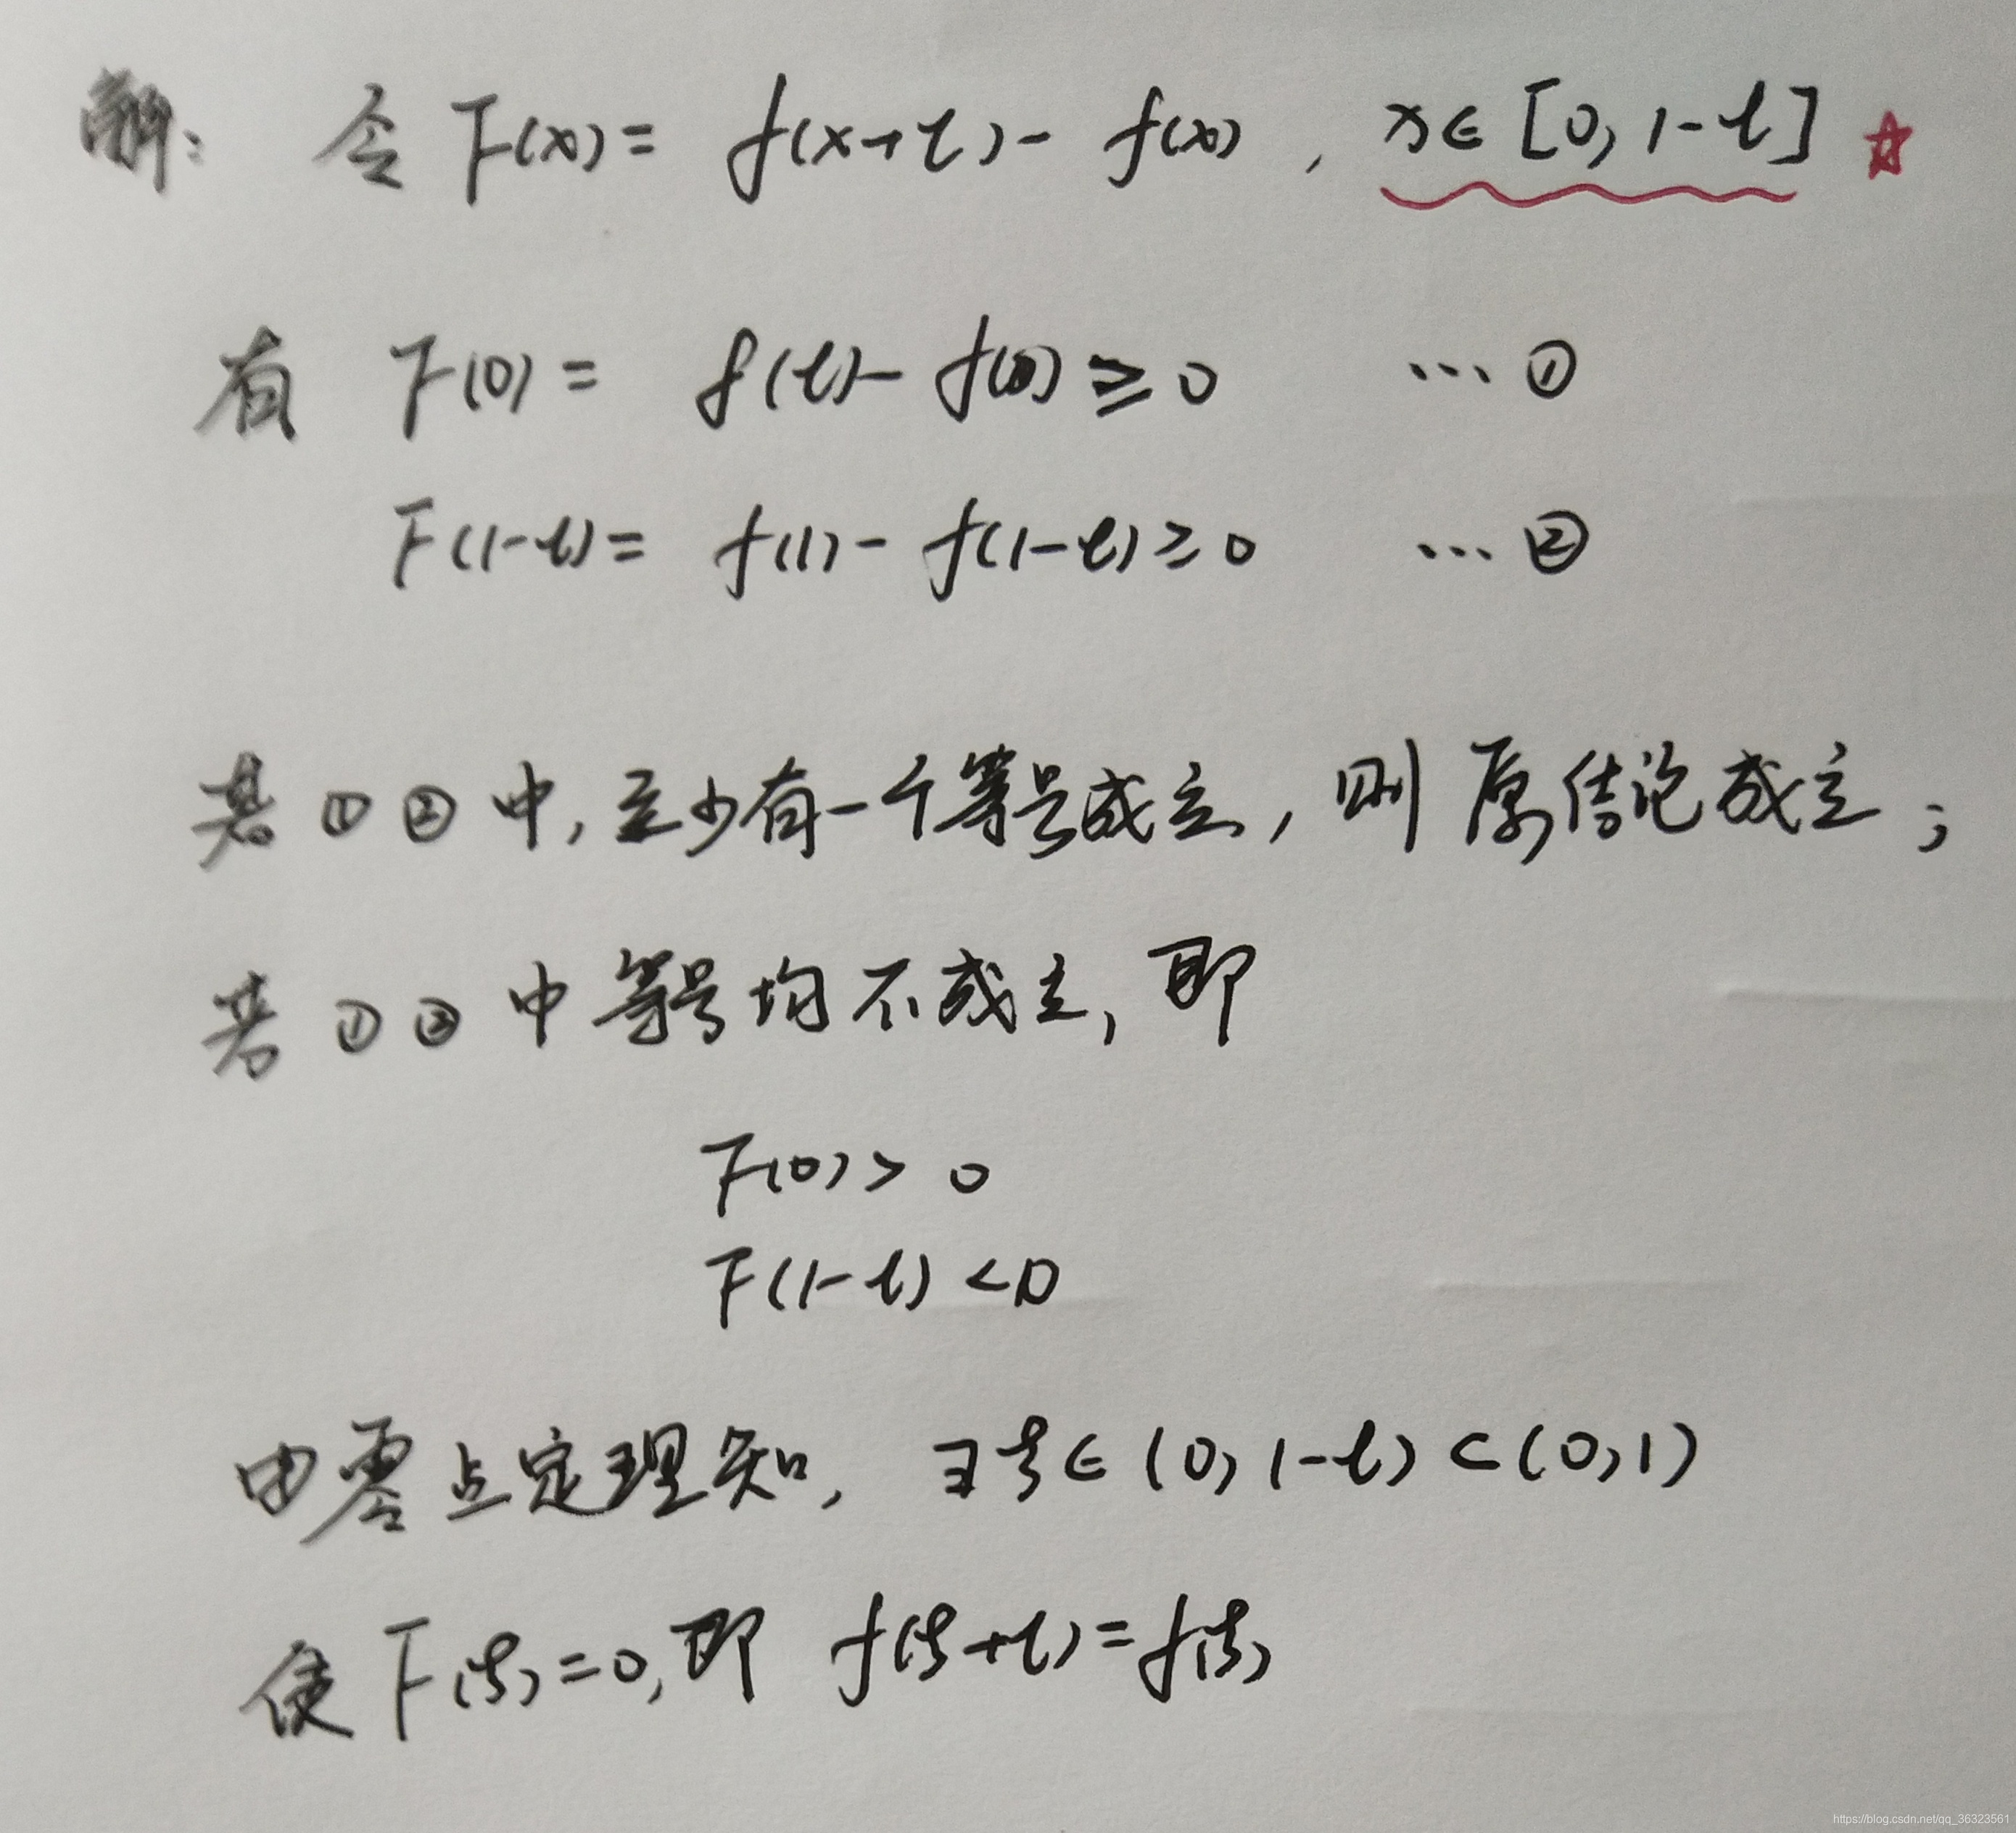 解: 令 F(x) = f(x+l) - f(x) , x∈[0, 1-l] ☆
有 F(0) = f(l) - f(0) ≥ 0 … ①
F(1-l) = f(1) - f(1-l) ≥ 0 … ②
若 ① ② 中, 至少有一个等号成立, 则 原结论成立;
若 ① ② 中 等号 均 不成立, 即
F(0) > 0
F(1-l) < 0
由零点定理知, ∃ξ∈(0, 1-l)⊂(0,1)
使 F(ξ)=0, 即 f(ξ+l)=f(ξ)
https://blog.csdn.net/qq_36323561